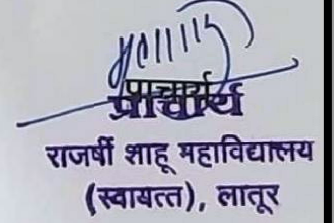 प्राचार्य
राजर्षी शाहू महाविद्यालय
(स्वायत्त), लातूर